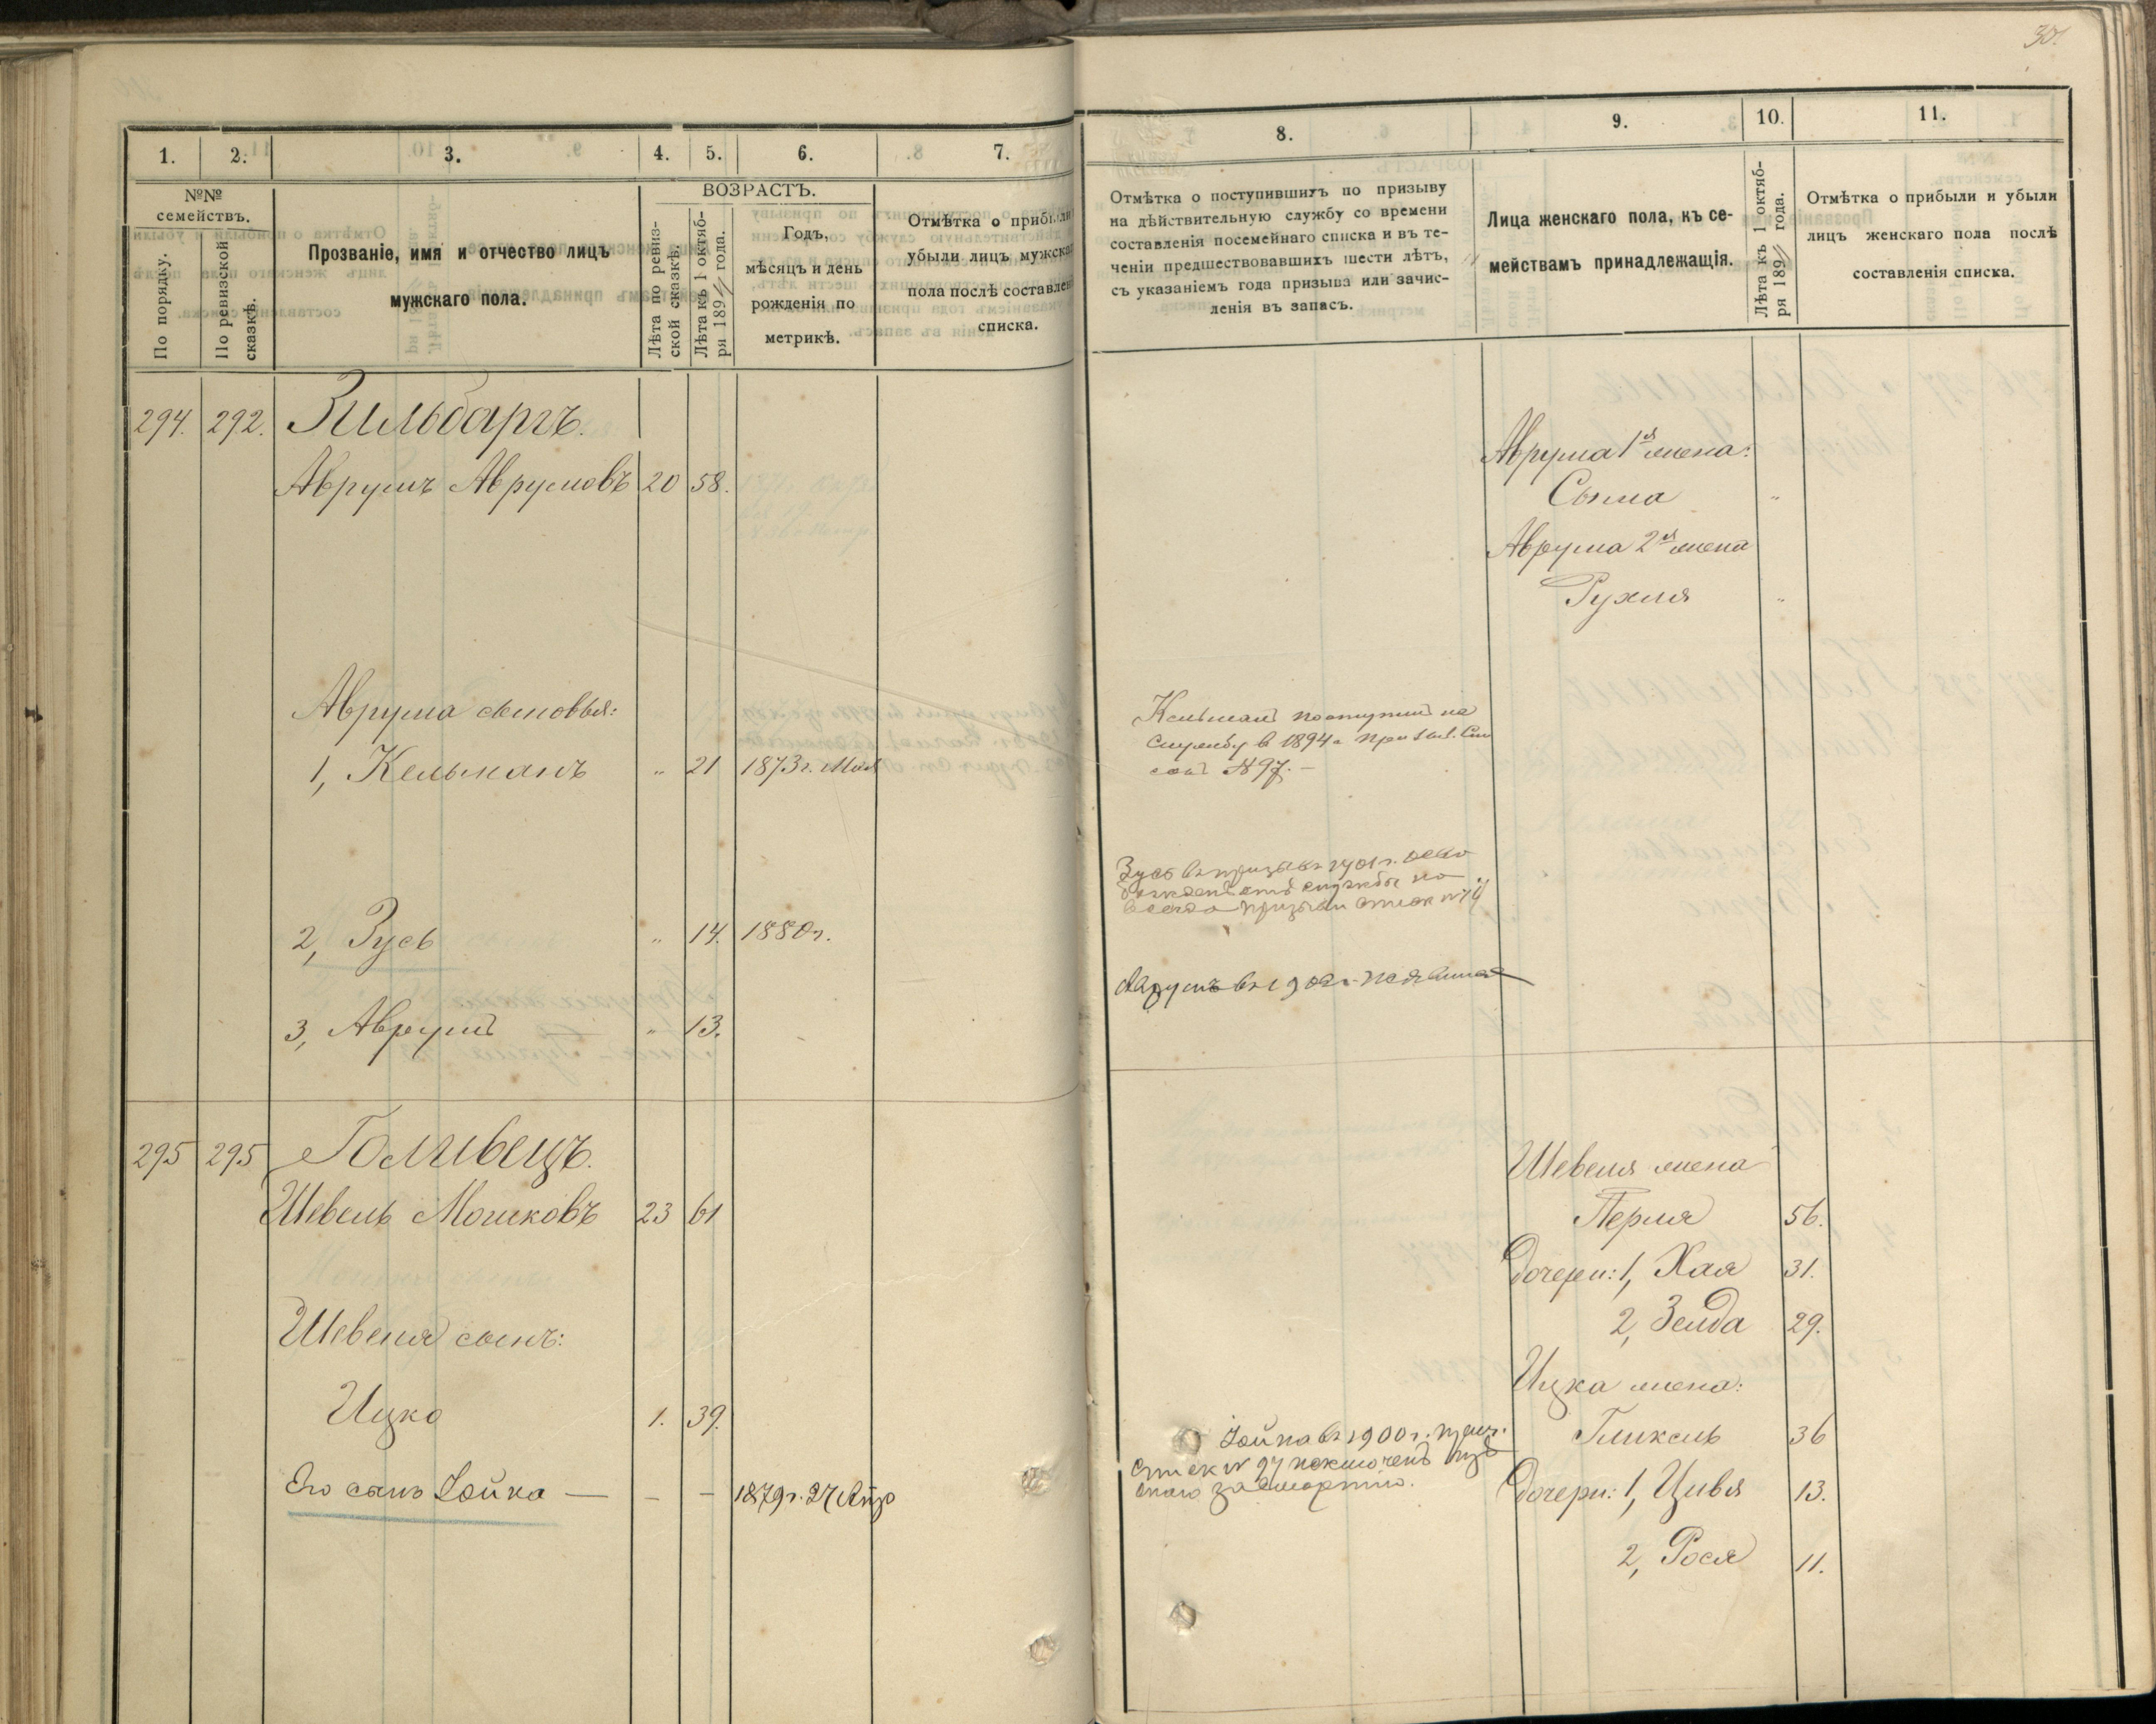 30.
1.
2.
3.
4.
5.
6.
7.
№№
семействъ.
По порядку.
По ревизской
сказкѣ.
Прозваніе, имя и отчество лицъ
мужскаго пола.
ВОЗРАСТЪ.
Лѣта по ревиз-
ской сказкѣ.
Лѣта къ 1 октяб-
ря 189 года.
Годъ,
мѣсяцъ и день
рожденія по
метрикѣ.
Отмѣтка о прибыли
убыли лицъ мужска
пола послѣ составлен
списка.
294. 292. Зильбаргъ.
Аврумъ Аврумовъ 20 58.
Аврума сыновья:
1, Кельманъ " 21 1873г. Мая
2, Зусь " 14. 1880г.
3, Аврумъ " 13.
295 295 Голивецъ.
Шевель Мошковъ 23 61
Шевеля сынъ:
Ицко 1. 39.
Его сынъ Іойна — – – 1879г. 27 Апр
8.
9.
10.
11.
Отмѣтка о поступившихъ по призыву
на дѣйствительную службу со времени
составленія посемейнаго списка и въ те-
ченіи предшествовавшихъ шести лѣтъ,
съ указаніемъ года призыва или зачис-
ленія въ запасъ.
Лица женскаго пола, къ се-
мействамъ принадлежащія.
Лѣта къ 1 октяб-
ря 189 года.
Отмѣтка о прибыли и убыли
лицъ женскаго пола послѣ
составленія списка.
Аврума 1я жена:
Сыма "
Аврума 2я жена
Рухля "
Кельманъ поступилъ на
службу в 1894г приз. Спи
N 97. —
Зусь въ призывъ 1901г. осво
божденъ отъ службы на
всегда призывн списк N
Аврумъ въ 1902г. не явился
Шевеля жена
Перля 56.
Дочери: 1, Хая 31.
2, Зелда 29.
Ицка жена:
Гликель 36
Іойна въ 1900г. приз.
списк N 97 исключенъ изъ
онаго за смертію.
Дочери: 1, Цивья 13.
2, Рося 11.